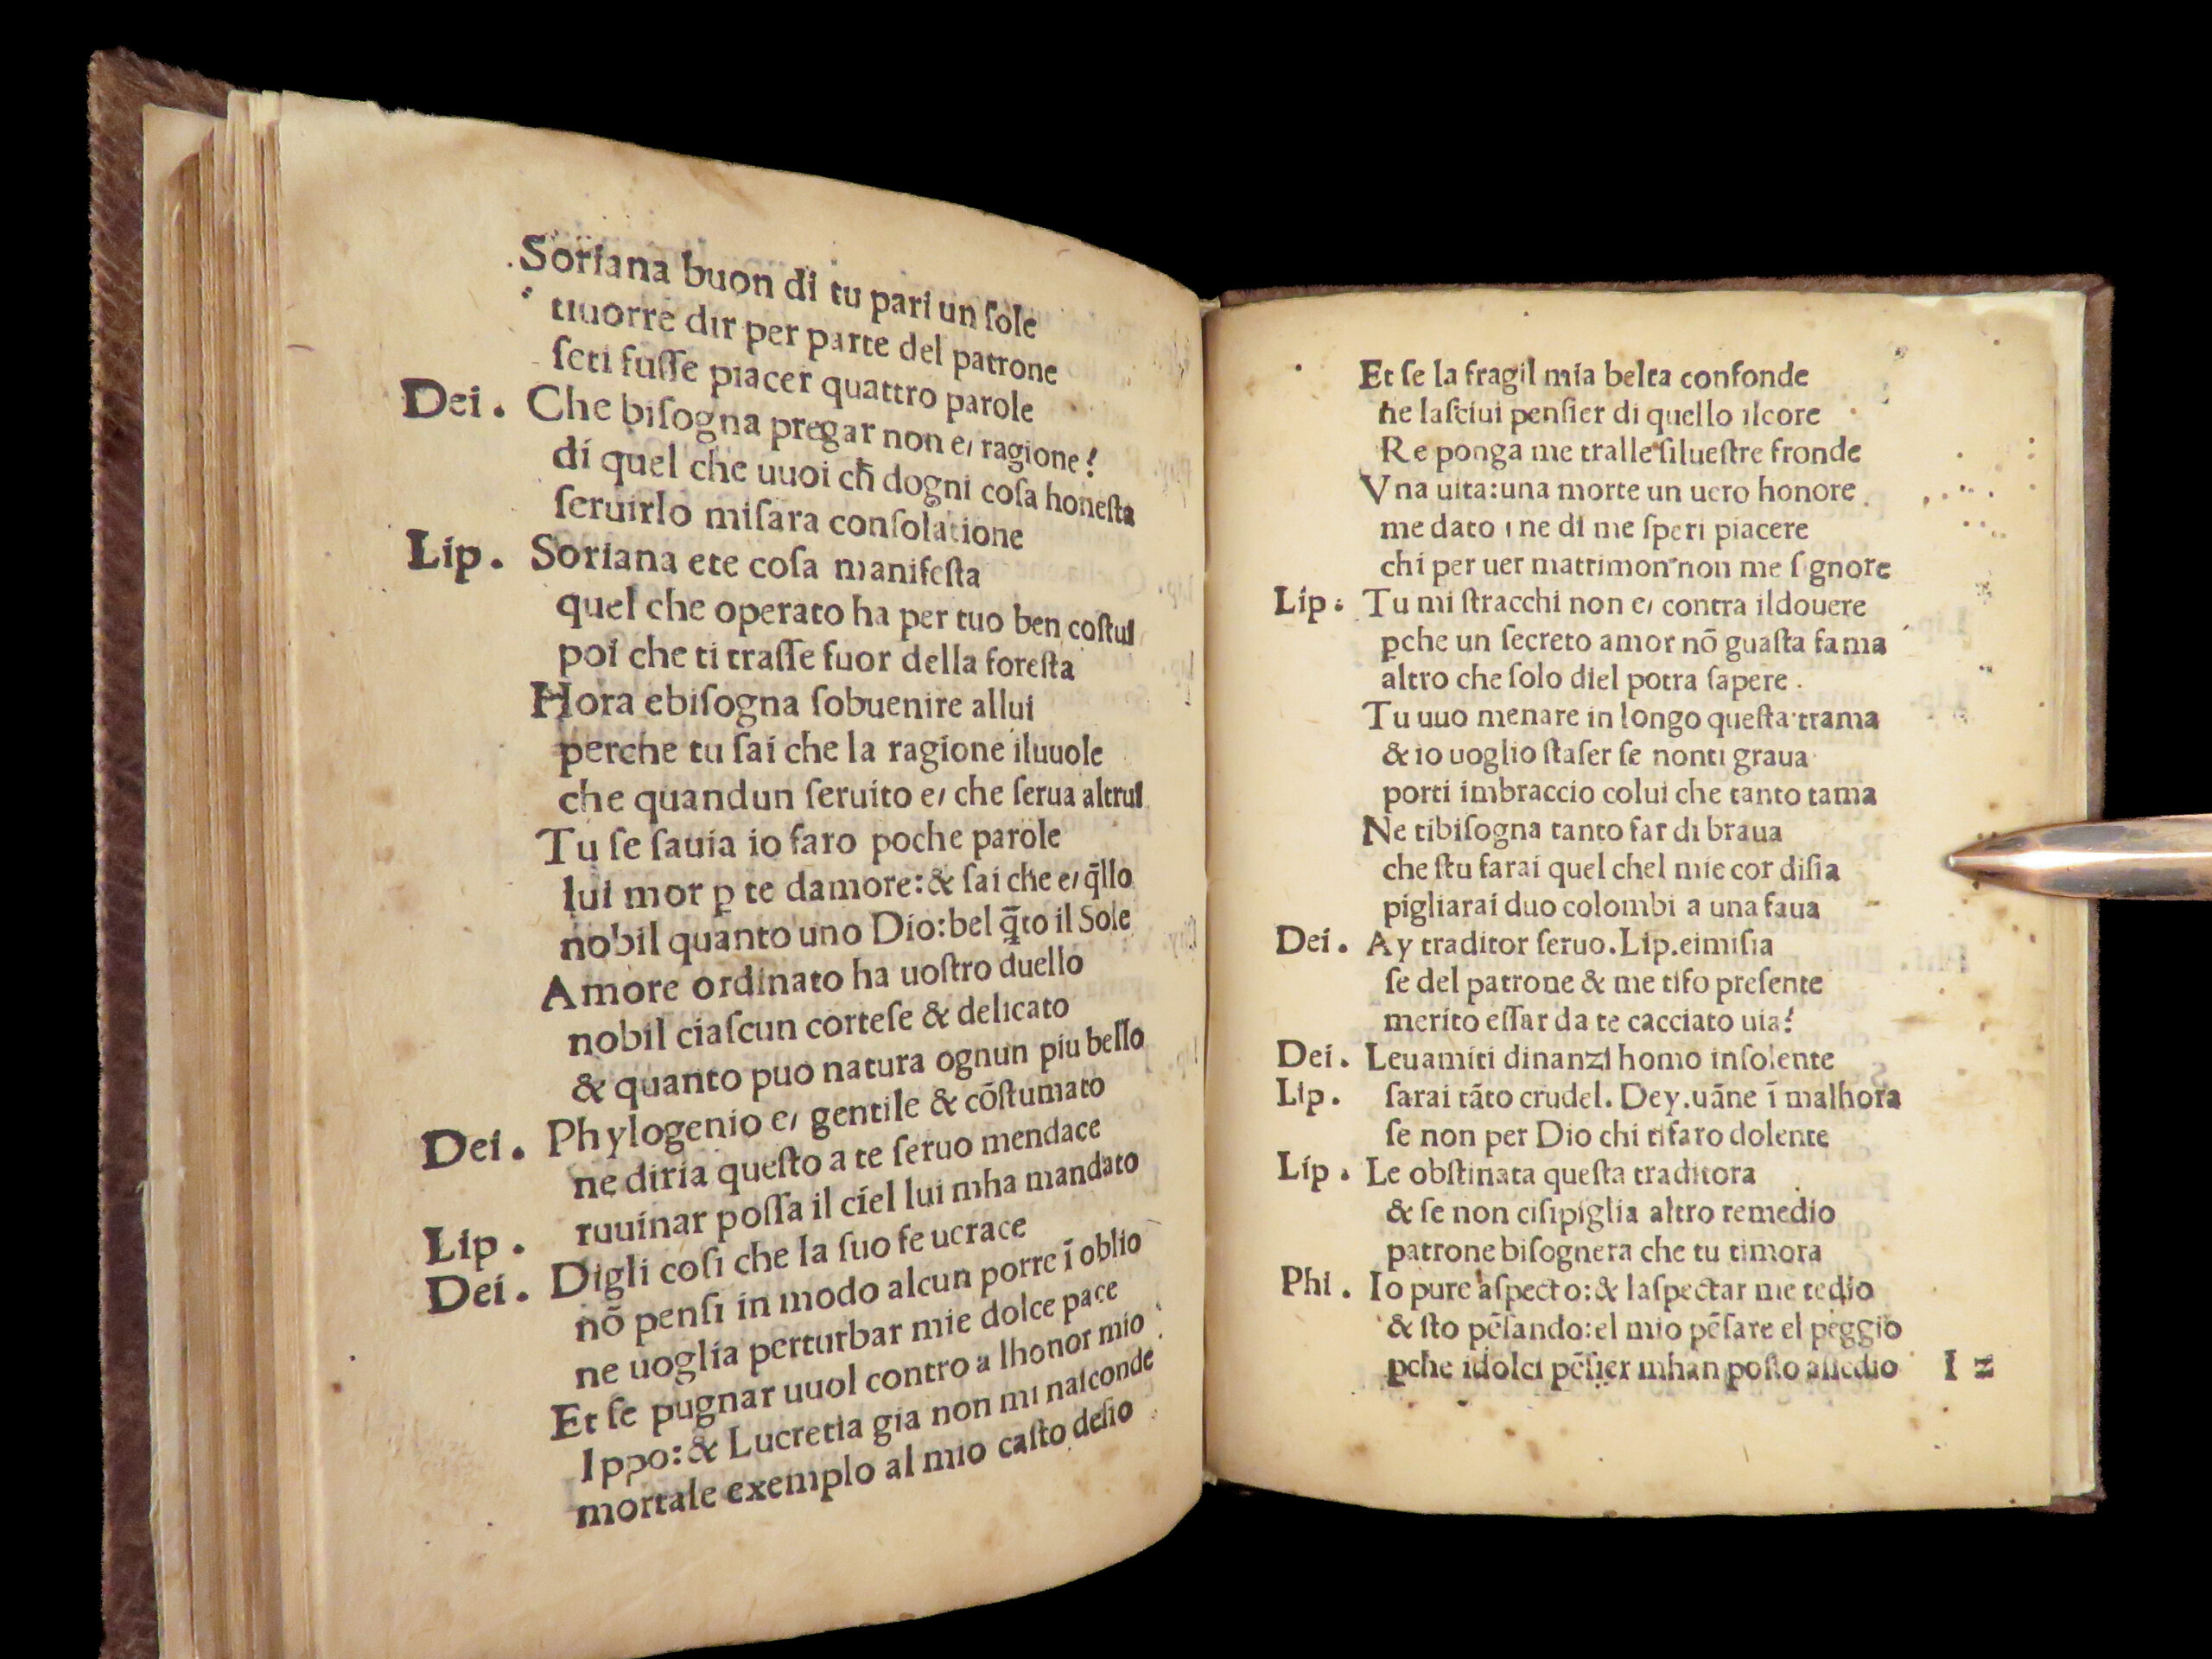 Soriana buon di tu pari un ſole
tiuorre dir per parte del patrone
ſeti fuſſe piacer quattro parole
Dei. Che biſogna pregar non e, ragione?
di quel che uuoi ch̄ dogni coſa honeſta
ſeruirlo miſara conſolatione
Lip. Soriana ete coſa manifeſta
quel che operato ha per tuo ben coſtui
poi che ti traſſe fuor della foreſta
Hora ebiſogna ſobuenire allui
perche tu ſai che la ragione iluuole
che quandun ſeruito e, che ſerua altrui
Tu ſe ſauia io faro poche parole
lui mor ꝑ te damore:& ſai che e, q̄llo
nobil quanto uno Dio:bel q̄to il Sole
Amore ordinato ha uoſtro duello
nobil ciaſcun corteſe & delicato
& quanto puo natura ognun piu bello
Dei. Phylogenio e, gentile & cōſtumato
ne diria queſto a te ſeruo mendace
Lip. ruuinar poſſa il ciel lui mha mandato
Dei. Digli coſi che la ſuo fe uerace
nō penſi in modo alcun porre ī oblio
ne uoglia perturbar mie dolce pace
Et ſe pugnar uuol contro a lhonor mio
Ippo:& Lucretia gia non mi naſconde
mortale exemplo al mio caſto deſio
Et ſe la fragil mia belta confonde
ne laſciui penſier di quello ilcore
Re ponga me tralle ſilueſtre fronde
Vna uita:una morte un uero honore
me dato ne di me ſperi piacere
chi per uer matrimon non me ſignore
Lip. Tu mi ſtracchi non e, contra ildouere
ꝑche un ſecreto amor nō guaſta fama
altro che ſolo diel potra ſapere.
Tu uuo menare in longo queſta trama
& io uoglio ſtaſer ſe nonti graua
porti imbraccio colui che tanto tama
Ne tibiſogna tanto far di braua
che ſtu farai quel chel mie cor diſia
pigliarai duo colombi a una faua
Dei. Ay traditor ſeruo.Lip.eimiſia
ſe del patrone & me tifo preſente
merito eſſar da te cacciato uia?
Dei. Leuamiti dinanzi homo inſolente
Lip. ſarai tāto crudel. Dey.uāne ī malhora
ſe non per Dio chi tifaro dolente
Lip. Le obſtinata queſta traditora
& ſe non ciſipiglia altro remedio
patrone biſognera che tu timora
Phi. Io pure aſpecto:& laſpectar me tedio
& ſto pēſando:el mio pēſare el peggio
ꝑche idolci pēſier mhan poſto aſſedio I 2